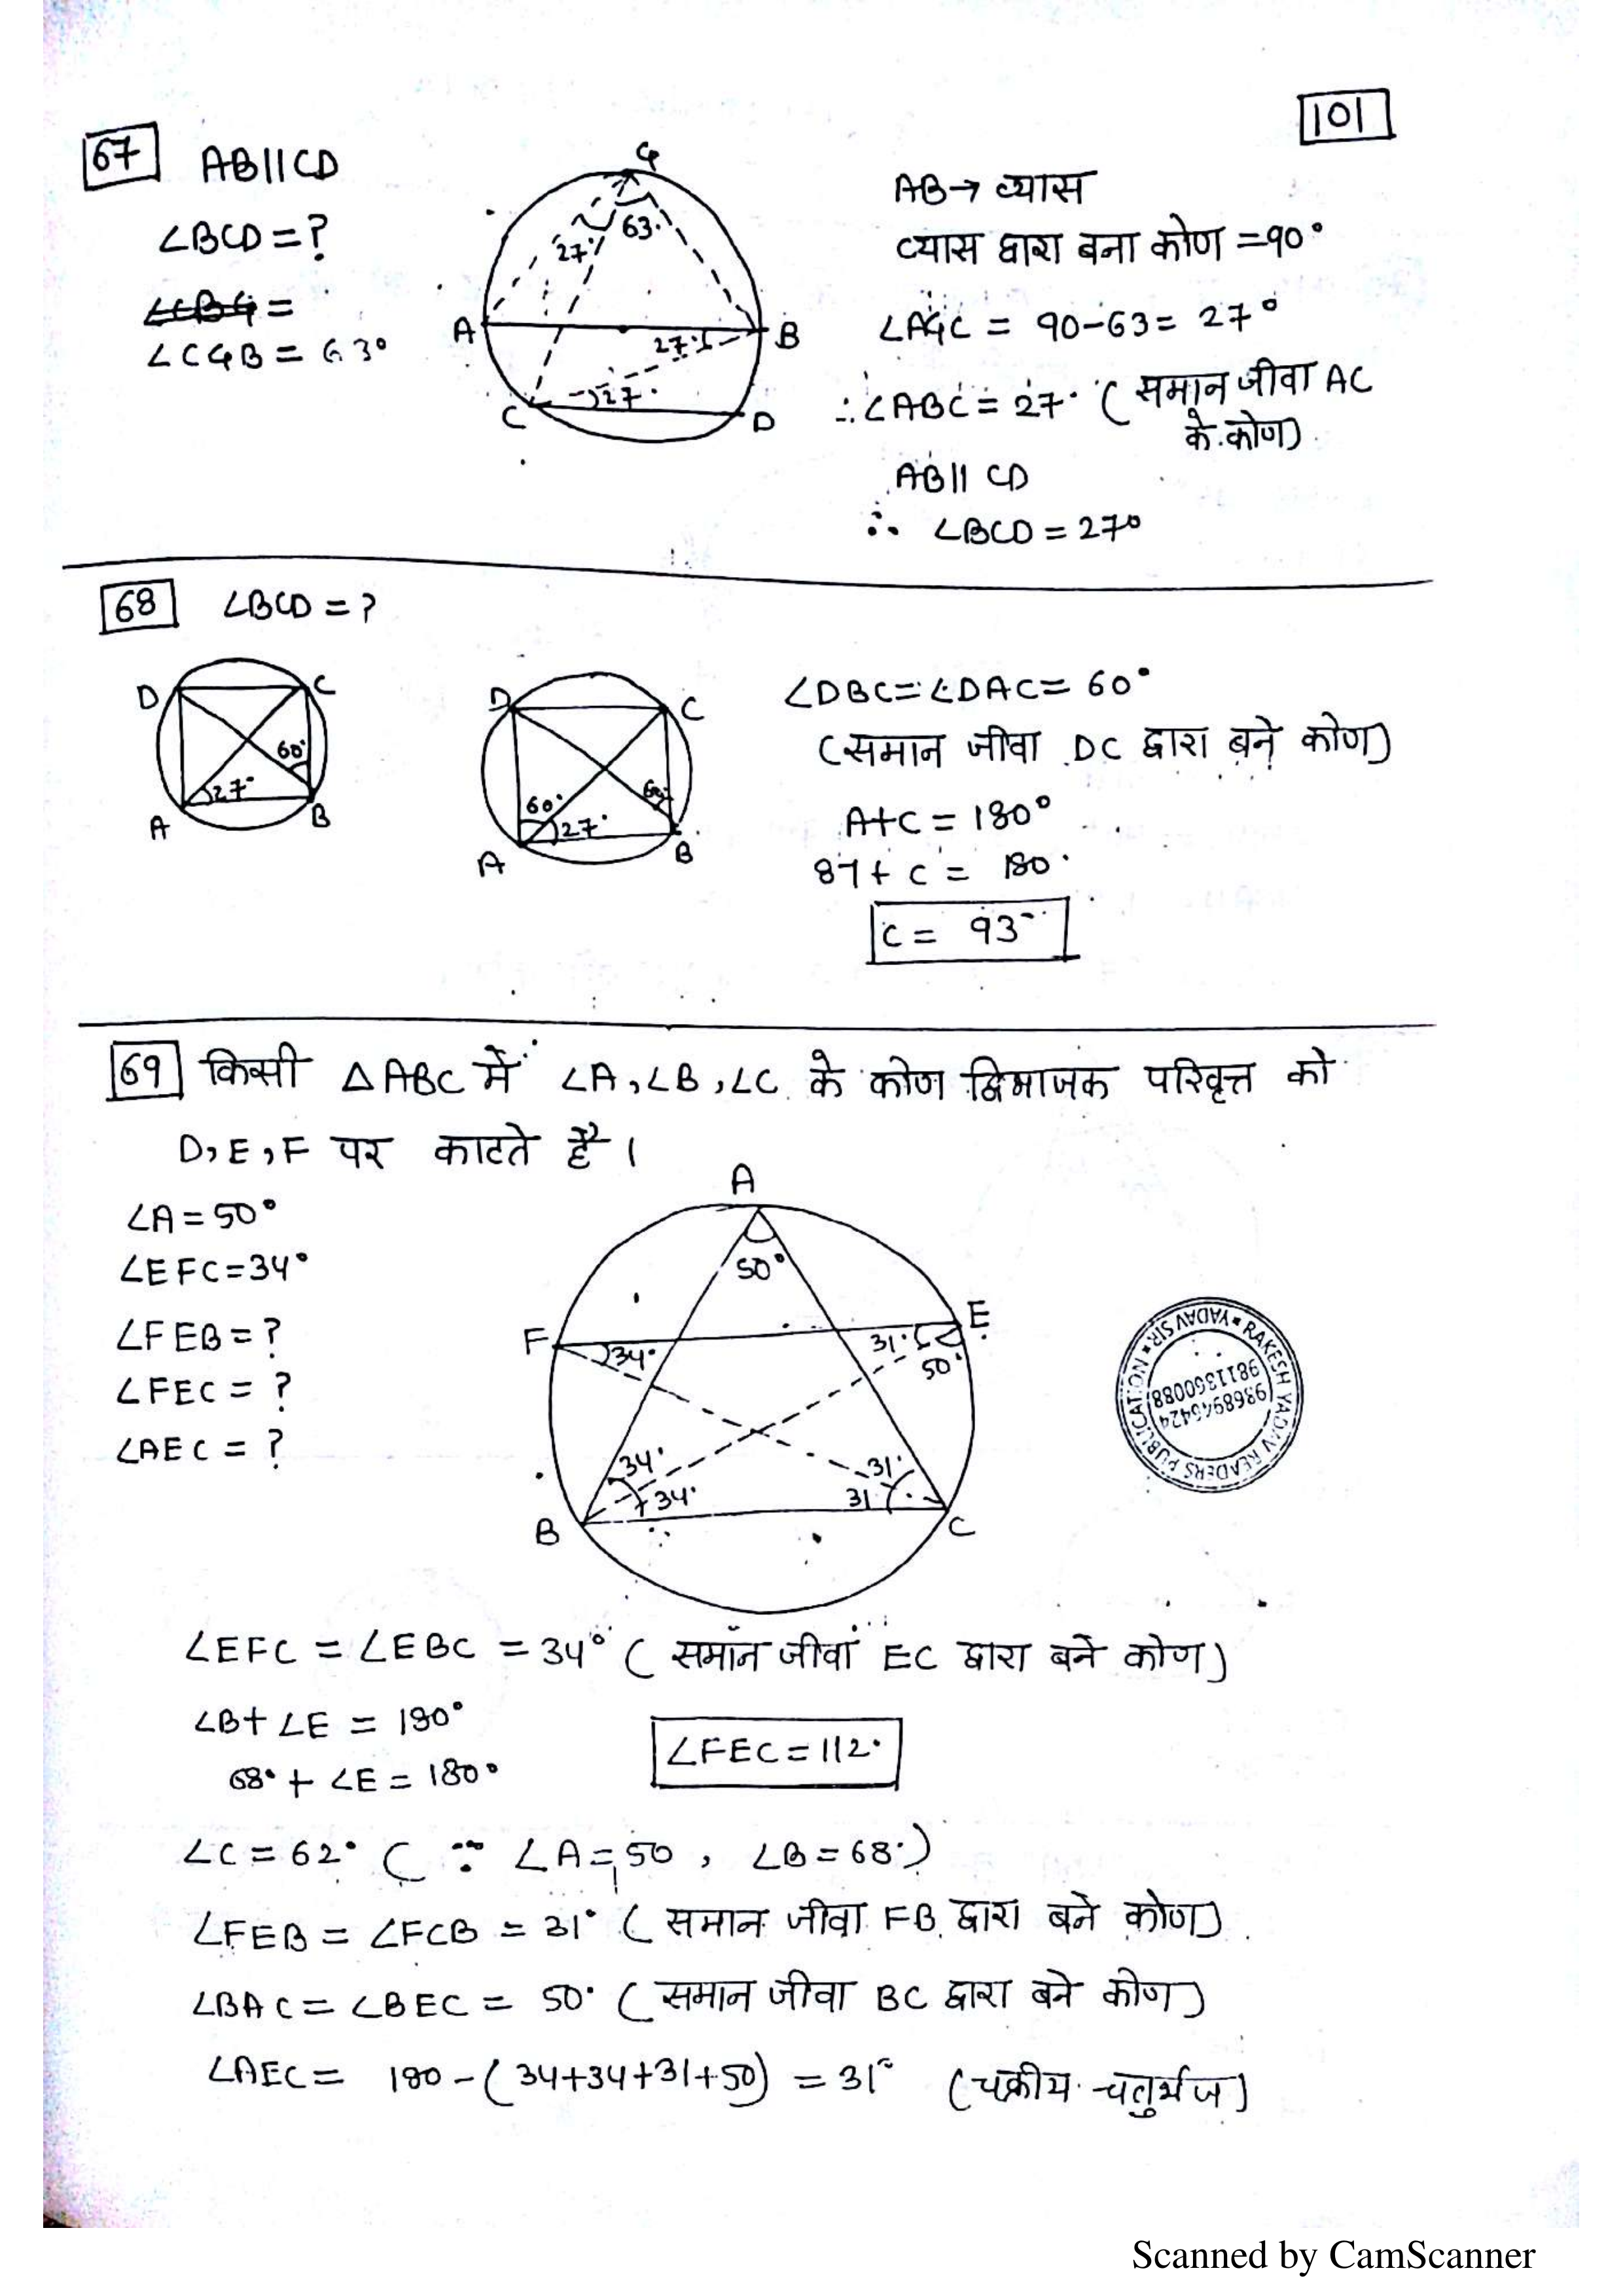 101
67 AB||CD
∠BCD = ?
∠CBG =
∠CGB = 63°
G
63°
27°
A
B
27°
27°
C
D
AB→ व्यास
व्यास द्वारा बना कोण =90°
∠AGC = 90-63= 27°
∴∠ABC = 27° (समान जीवा AC
के कोण)
AB|| CD
∴ ∠BCD = 27°
68 ∠BCD = ?
D
C
60°
27°
A
B
D
C
60°
60°
27°
A
B
∠DBC=∠DAC= 60°
(समान जीवा DC द्वारा बने कोण)
A+C = 180°
87+ C = 180°
C = 93°
69 किसी △ABC में ∠A,∠B,∠C के कोण द्विभाजक परिवृत्त को
D,E,F पर काटते है।
∠A=50°
∠EFC=34°
∠FEB= ?
∠FEC = ?
∠AEC = ?
A
50°
F
E
34°
31°
50°
34°
34°
31°
31
B
C
YADAV SIR RAKESH YADAV READERS PUBLICATION
9868946424
8800931186
∠EFC = ∠EBC = 34° (समान जीवा EC द्वारा बने कोण)
∠B+ ∠E = 180°
68°+ ∠E = 180°
∠FEC = 112°
∠C = 62° (∵ ∠A=50, ∠B=68°)
∠FEB = ∠FCB = 31° (समान जीवा FB द्वारा बने कोण)
∠BAC = ∠BEC = 50° (समान जीवा BC द्वारा बने कोण)
∠AEC = 180-(34+34+31+50) = 31° (चक्रीय चतुर्भुज)
Scanned by CamScanner